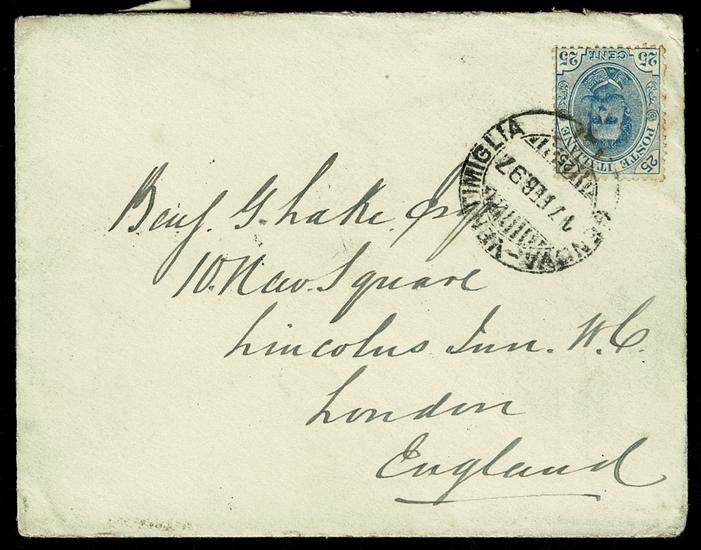 25 CENT. 25
POSTE ITALIANE
25 25
GENOVA-VENTIMIGLIA
17 FEB 97
Benj. G. Lake. Esq
10. New. Square
Lincolns Inn. W.C.
London
England